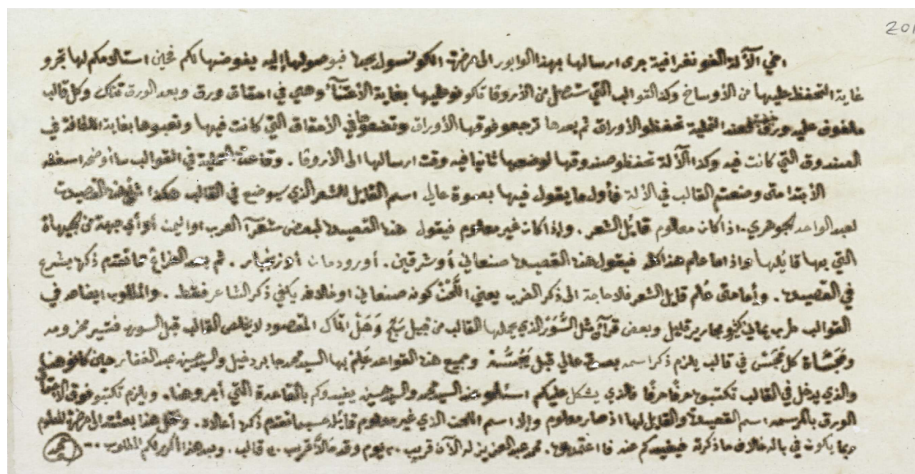 201
اخي الآلة الفونغرافية جرى ارسالها بهذا الوابور الى حضرة الكونسول بجدا فبوصولها إليه يفوضها لكم فحين استلامكم لها تجرو
غاية التحفظ عليها من الأوساخ وكذا القوالب التي ستصل من الأروفا تكونو عليها بغاية الأعتنآء وهي في احقاق ورق وبعد الورق وكل قالب
ملفوف عليه ورق فعند التخلية تحفظو الأوراق ثم بعدها ترجعو فوقها الأوراق وتضعوها في الأحقاق التي كانت فيها وتعبوها بغاية اللطافة في
الصندوق التي كانت فيه وكذا الآلة تحفظو صندوقها لوضعها ثانيا فيه وقت ارسالها الى الأروفا . وقاعدة التعبية في القوالب
الأبتدا متى وضعتم القالب في الآلة فأول ما يقول فيها بصوة عالي اسم القايل للشعر الذي سيوضع في القالب هكذا
لعبد الواحد الجوهري . اذا كان معلوم قايل الشعر . واذا كان غير معلوم فيقول هذا القصيد لبعض شعرآ العرب او اليمن او أي جهة من الجهاة
التي بها قايلها واذا ما علم هذا كله فيقول هذا القصيد صنعاني أو شرقين . أو رودمان . ثم بعد الفراغ ما تقدم ذكرها يشرع
في القصيد . وأما متى علم قايل الشعر فلا حاجة الى ذكر الضرب يعني اللحن كونه صنعاني او خلافه يكفي ذكر الشاعر فقط . والمطلوب ايضا صد في
القوالب طرب يماني كثير قليل وبعض قرآني مثل السور الذي يحملها القالب من قبيل تبع وهل اتاك المقصود لا يخلص القالب قبل السوره
كل في قالب يلزم ذكر اسمه بصوت عالي قبل وجميع هذا القواعد علم بها السيد محمد جابر دخيل والسيد حسين عبد الغفار حين كانو هنا
والذي يدخل في القالب تكتبوه حرفا حرفا فالذي يشكل عليكم اسئلو عنه السيد محمد والسيد حسين يفيدوكم بالقاعدة التي أجروها هنا . ويلزم تكتبو فوق
الورق بالرسمه اسم القصيد والقايل لها اذا صار معلوم وإلا اسم اللحن الذي غير معلوم قايله حسبما تقدم ذكره أعلاه .
ربما يكون في باله خلاف ما ذكرته فيفيدكم عنه فاعتمدوه . محمد عبد العزيز له الآن قريب يوم وقد ملأ قريب قالب . وبعد هذا أذكر لكم المطلوب
محمد